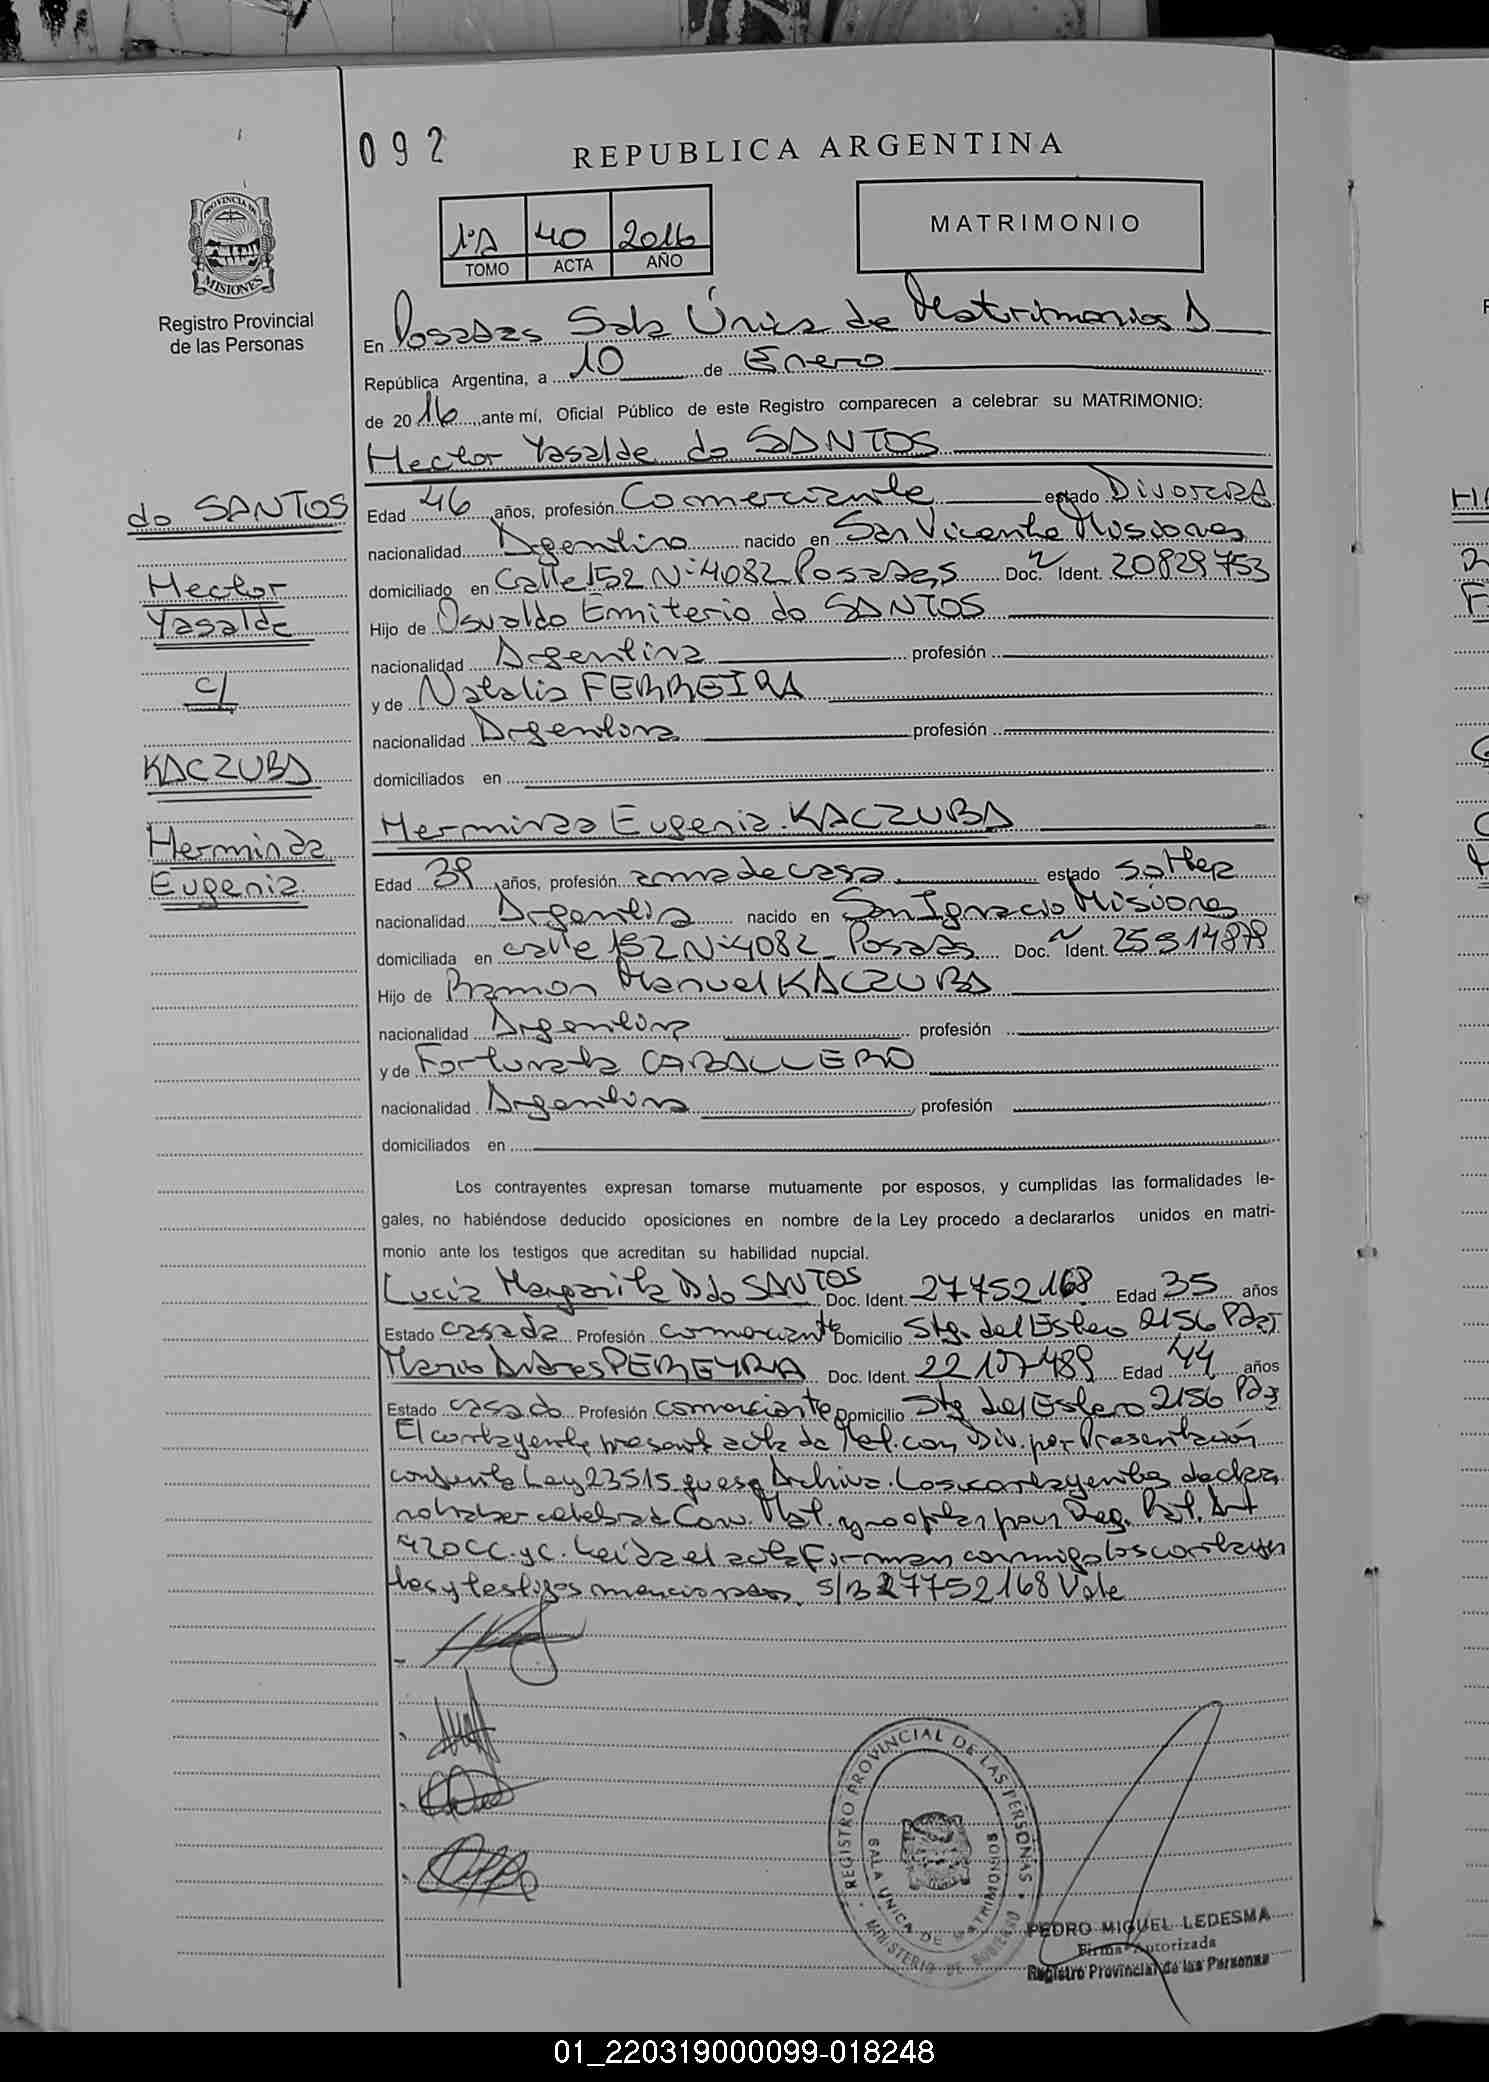 092
REPUBLICA ARGENTINA
PROVINCIA DE
MISIONES
Registro Provincial
de las Personas
1ºA 40 2016
TOMO ACTA AÑO
MATRIMONIO
En Posadas Sala Única de Matrimonios A
República Argentina, a 10 de Enero
de 2016, ante mí, Oficial Público de este Registro comparecen a celebrar su MATRIMONIO:
Hector Yasalde do SANTOS
do SANTOS
Hector
Yasalde
c/
KACZUBA
Herminda
Eugenia
Edad 46 años, profesión Comerciante estado Divorciado
nacionalidad Argentina nacido en San Vicente Misiones
domiciliado en Calle 152 Nº 4082 Posadas Doc. Ident. 20829753
Hijo de Osvaldo Emiterio do SANTOS
nacionalidad Argentina profesión
y de Natalia FERREIRA
nacionalidad Argentina profesión
domiciliados en
Herminda Eugenia KACZUBA
Edad 39 años, profesión ama de casa estado soltera
nacionalidad Argentina nacido en San Ignacio Misiones
domiciliada en calle 152 Nº 4082 Posadas Doc. Ident. 25914878
Hijo de Ramon Manuel KACZUBA
nacionalidad Argentina profesión
y de Fortunata CABALLERO
nacionalidad Argentina profesión
domiciliados en
Los contrayentes expresan tomarse mutuamente por esposos, y cumplidas las formalidades le-
gales, no habiéndose deducido oposiciones en nombre de la Ley procedo a declararlos unidos en matri-
monio ante los testigos que acreditan su habilidad nupcial.
Lucia Margarita do SANTOS Doc. Ident. 27752168 Edad 35 años
Estado casada Profesión comerciante Domicilio Stg. del Estero 2156
Mario Andres PEREYRA Doc. Ident. 22 489 Edad 44 años
Estado casado Profesión comerciante Domicilio Stg del Estero 2156
El contrayente presenta acta de Mat. con Div. por Presentación
conjunta Ley 23515 que se Archiva. Los contrayentes declaran
no haber celebrado Conv. Mat. y no optan por Reg. Pat. Art
420 CC. y C. Leida el acta Firman conmigo los contrayen
tes y testigos mencionados. S/B 27752168 Vale
REGISTRO PROVINCIAL DE LAS PERSONAS
SALA UNICA DE MATRIMONIOS
MINISTERIO DE GOBIERNO
PEDRO MIGUEL LEDESMA
Firma Autorizada
Registro Provincial de las Personas
01_220319000099-018248